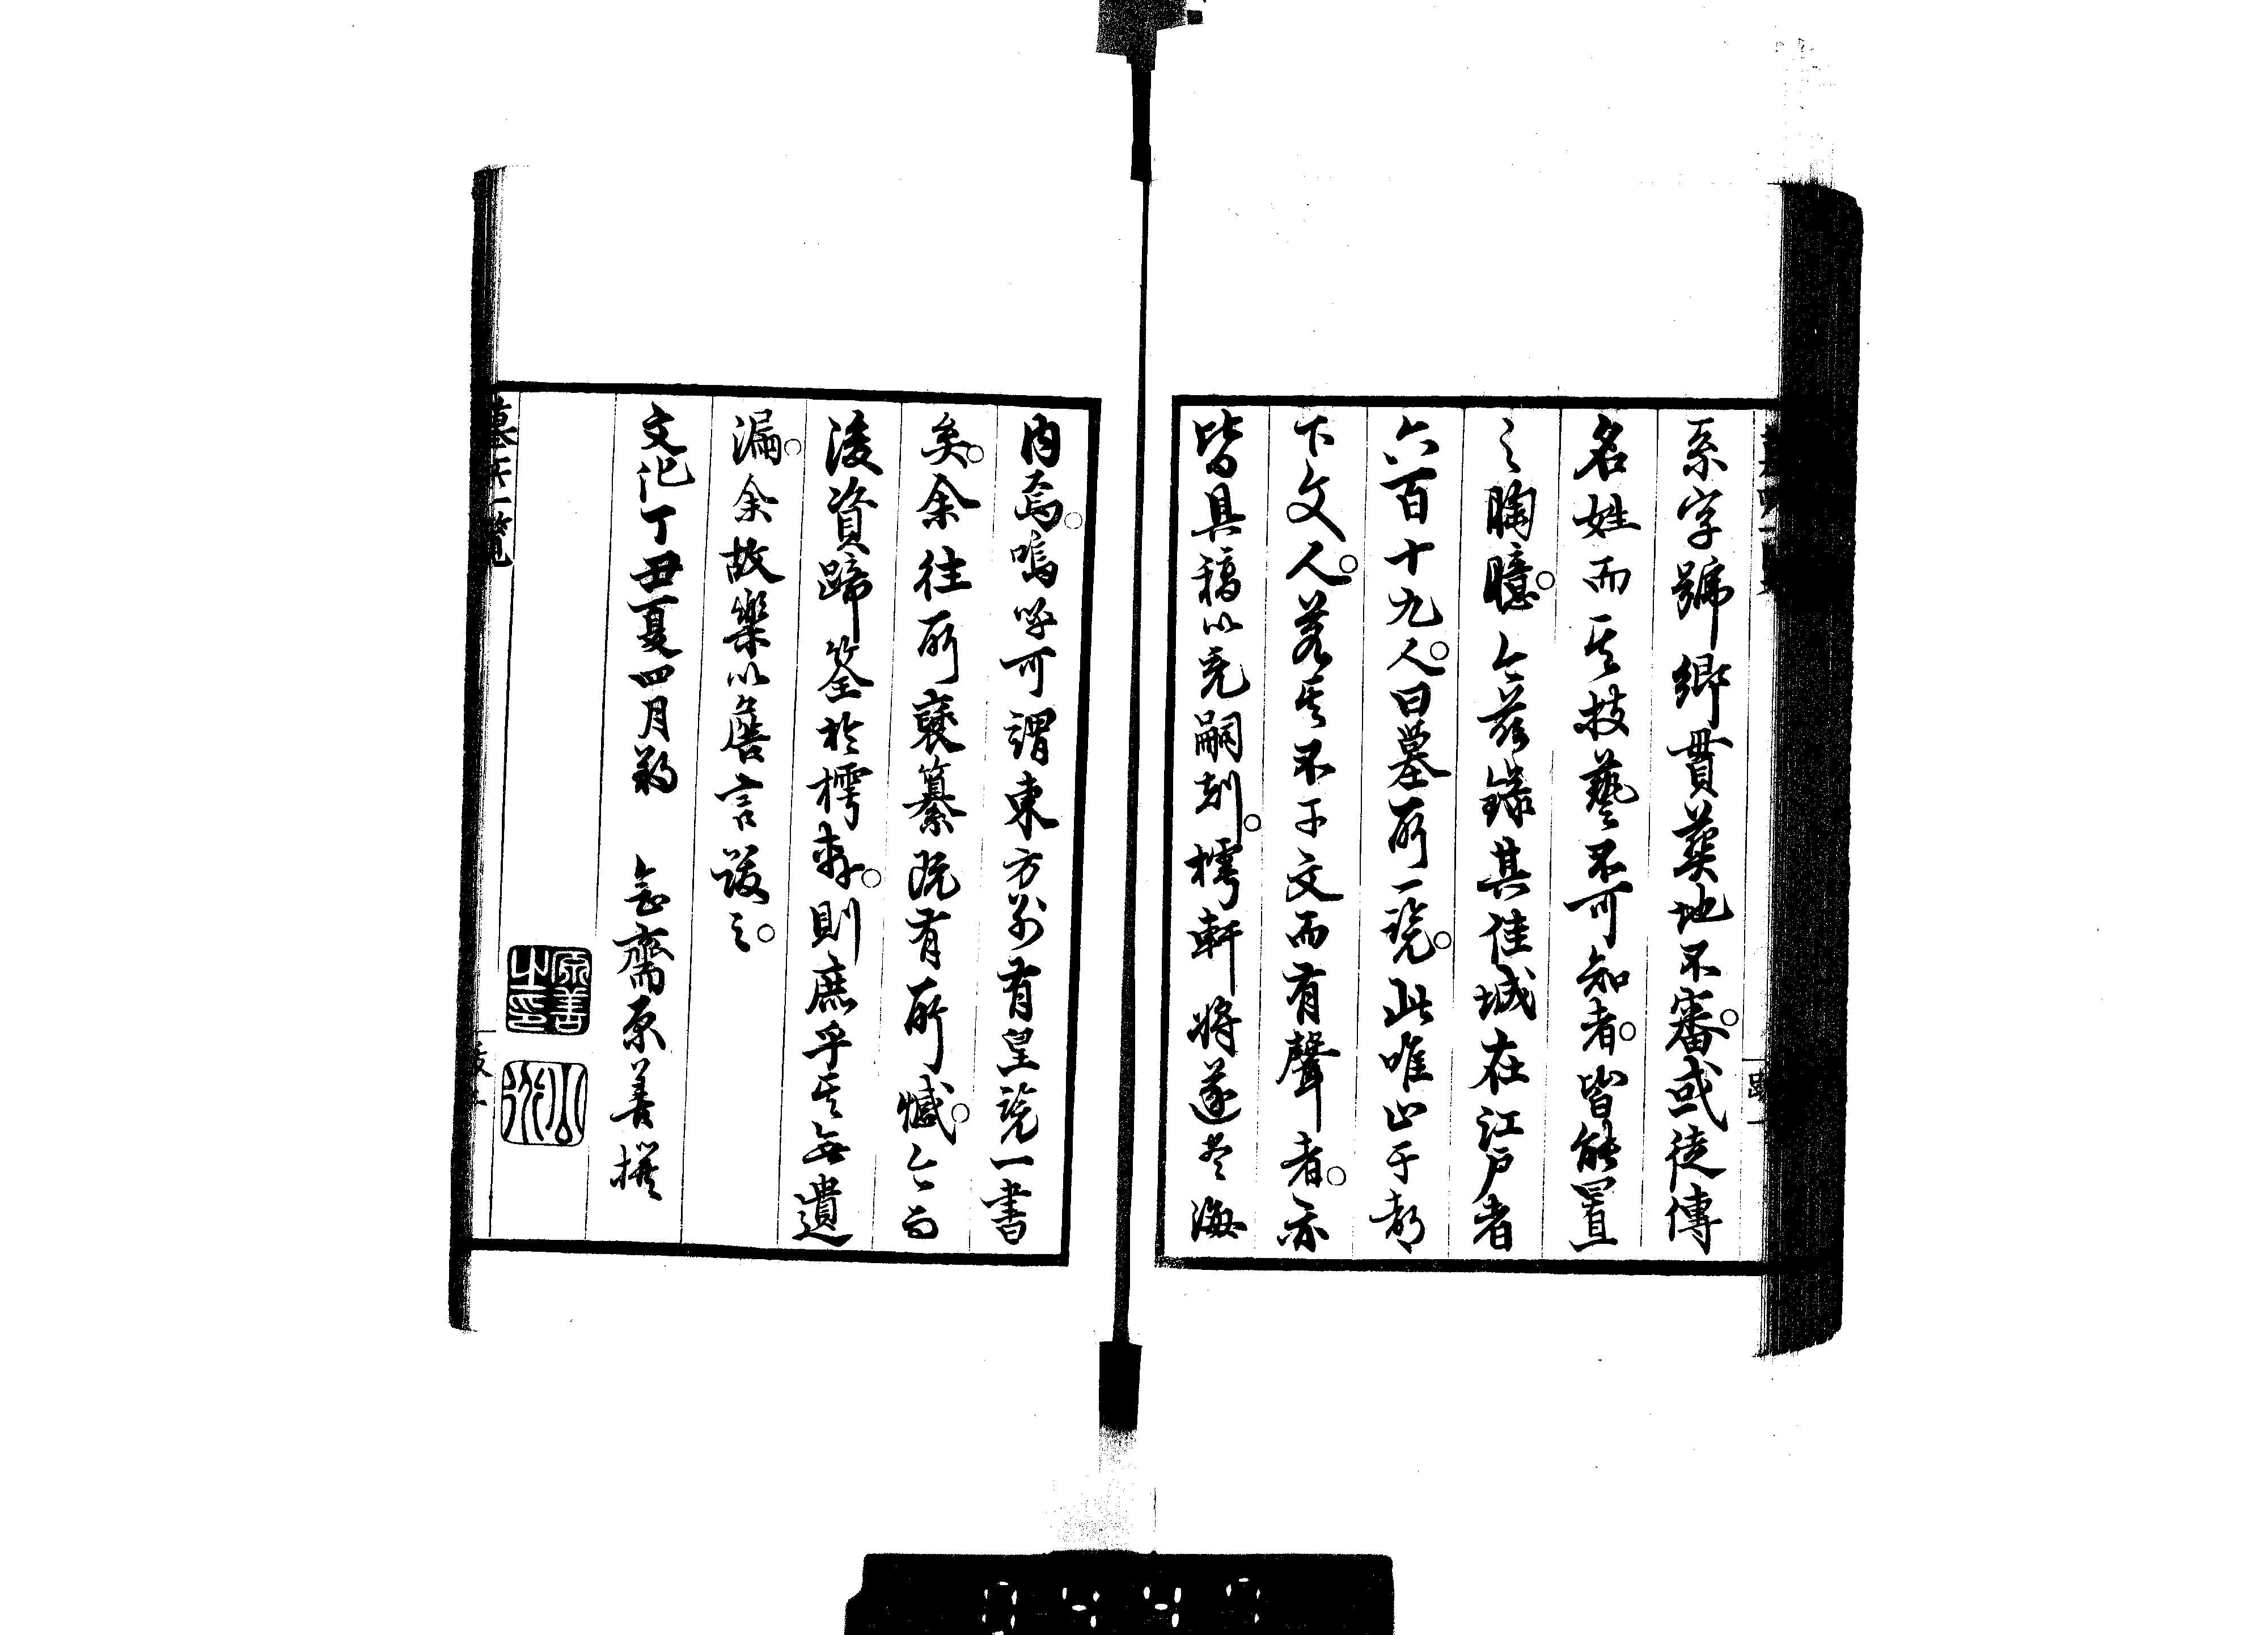 系字號鄉貫葬地不審。或徒傳
名姓而其技藝不可知者。皆能置
之胸臆。今茲錄其佳城在江戶者
六百十九人。曰墓所一覽。此唯止于都
下文人。若其不于文而有聲者。亦
皆具稿以竟嗣刻。樗軒將遂盡海
內焉。嗚呼可謂東方別有皇覽一書
矣。余往所裒纂既有所憾。今而
後資蹄筌於樗軒。則庶乎其無遺
漏。余故樂以詹言跋之。
文化丁丑夏四月 念齋原善撰
原善之印
公道
墓所一覽